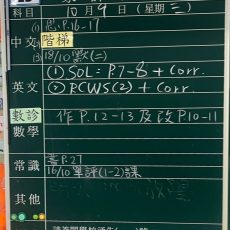 科目 10月9日(星期三)
(1) 思P.16-17
中文 階梯
(3) 18/10 默(二)
英文 (1) SOL: P.7-8 + Corr.
(2) PCWS(2) + Corr.
數診 作P.12-13及改P10-11
數學
常識 書P.27
16/10單評(1-2)課
其他